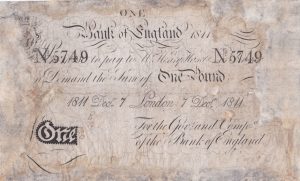 ONE
Bank of England 1811
No. 5749 to pay to Mr. Henry Hase No. 5749
on Demand the Sum of One Pound
1811 Dec. 7 London 7 Dec. 1811
For the Gov. and Compa.
of the Bank of England
One